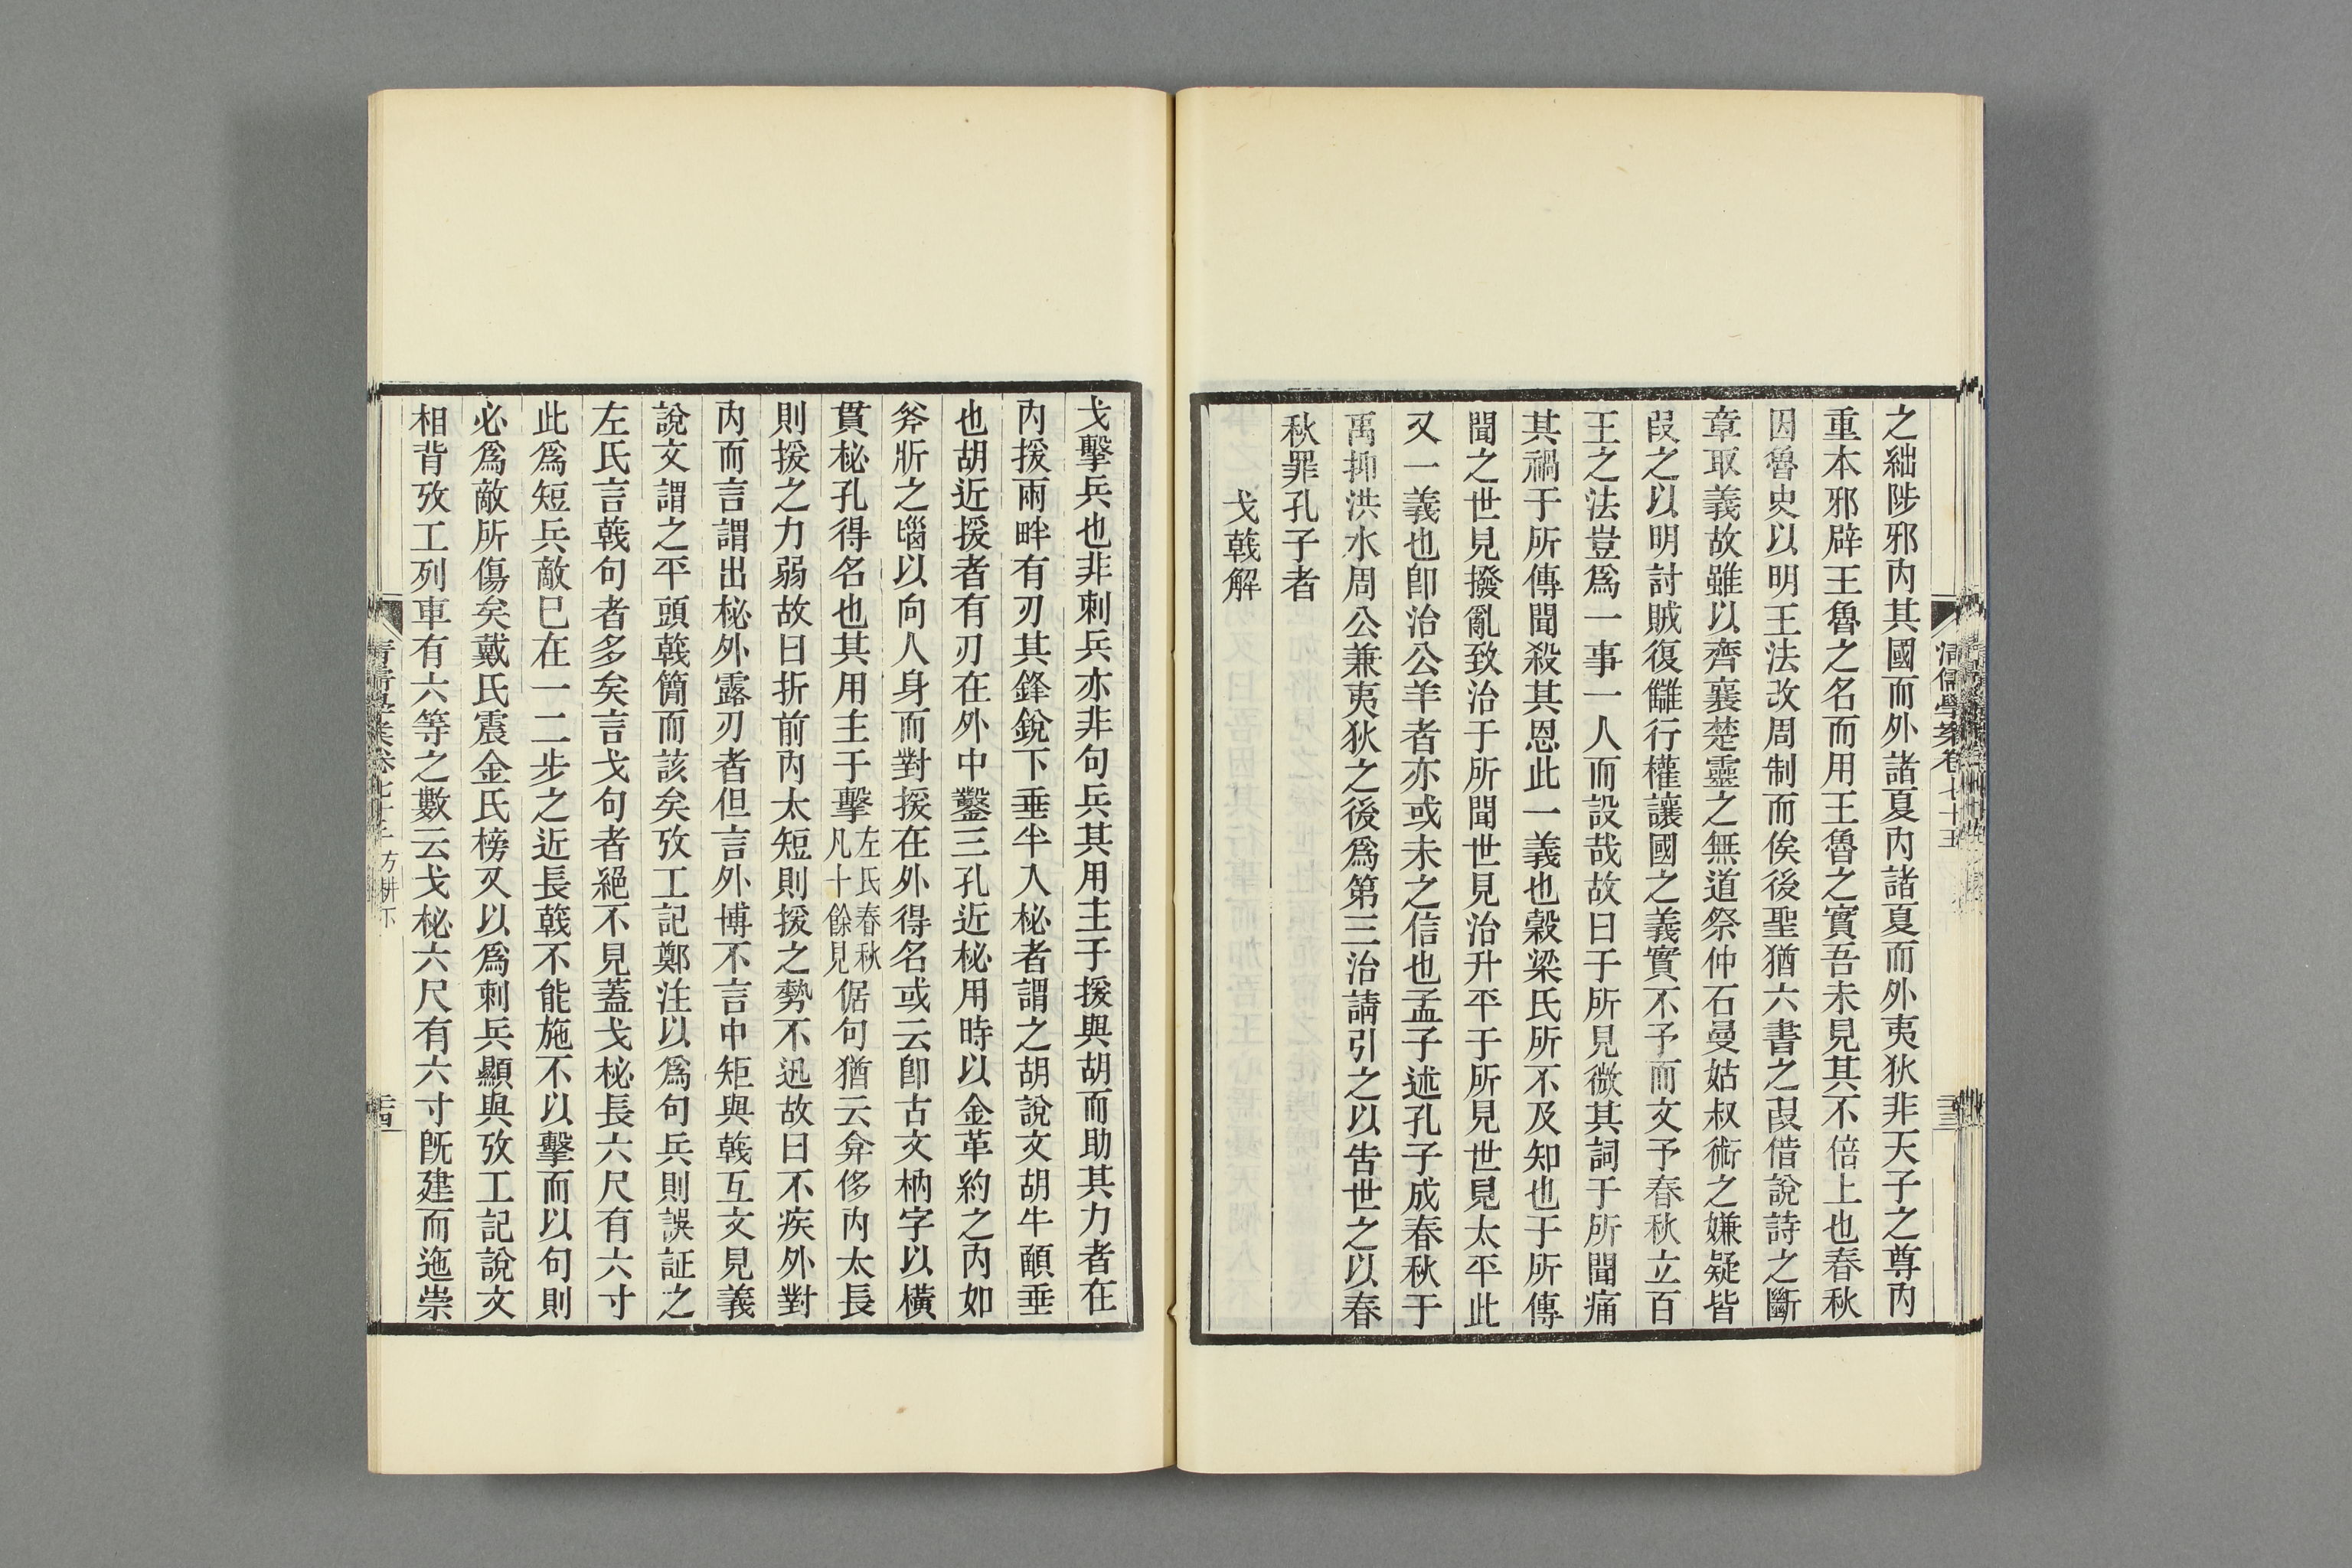 清儒學案卷七十五
之絀陟邪內其國而外諸夏內諸夏而外夷狄非天子之尊內
重本邪辟王魯之名而用王魯之實吾未見其不倍上也春秋
因魯史以明王法改周制而俟後聖猶六書之叚借說詩之斷
章取義故雖以齊襄楚靈之無道祭仲石曼姑叔術之嫌疑皆
叚之以明討賊復讎行權讓國之義實不予而文予春秋立百
王之法豈爲一事一人而設哉故曰于所見微其詞于所聞痛
其禍于所傳聞殺其恩此一義也穀梁氏所不及知也于所傳
聞之世見撥亂致治于所聞世見治升平于所見世見太平此
又一義也卽治公羊者亦或未之信也孟子述孔子成春秋于
禹抑洪水周公兼夷狄之後爲第三治請引之以告世之以春
秋罪孔子者
戈戟解
戈擊兵也非刺兵亦非句兵其用主于援與胡而助其力者在
內援兩畔有刃其鋒銳下垂半入柲者謂之胡說文胡牛顄垂
也胡近援者有刃在外中鑿三孔近柲用時以金革約之內如
斧斨之𡿺以向人身而對援在外得名或云卽古文枘字以橫
貫柲孔得名也其用主于擊左氏春秋凡十餘見倨句猶云弇侈內太長
則援之力弱故曰折前內太短則援之勢不迅故曰不疾外對
內而言謂出柲外露刃者但言外博不言中矩與戟互文見義
說文謂之平頭戟簡而該矣攷工記鄭注以爲句兵則誤証之
左氏言戟句者多矣言戈句者絕不見蓋戈柲長六尺有六寸
此爲短兵敵已在一二步之近長戟不能施不以擊而以句則
必爲敵所傷矣戴氏震金氏榜又以爲刺兵顯與攷工記說文
相背攷工列車有六等之數云戈柲六尺有六寸旣建而迤崇
清儒學案卷七十五 方耕下